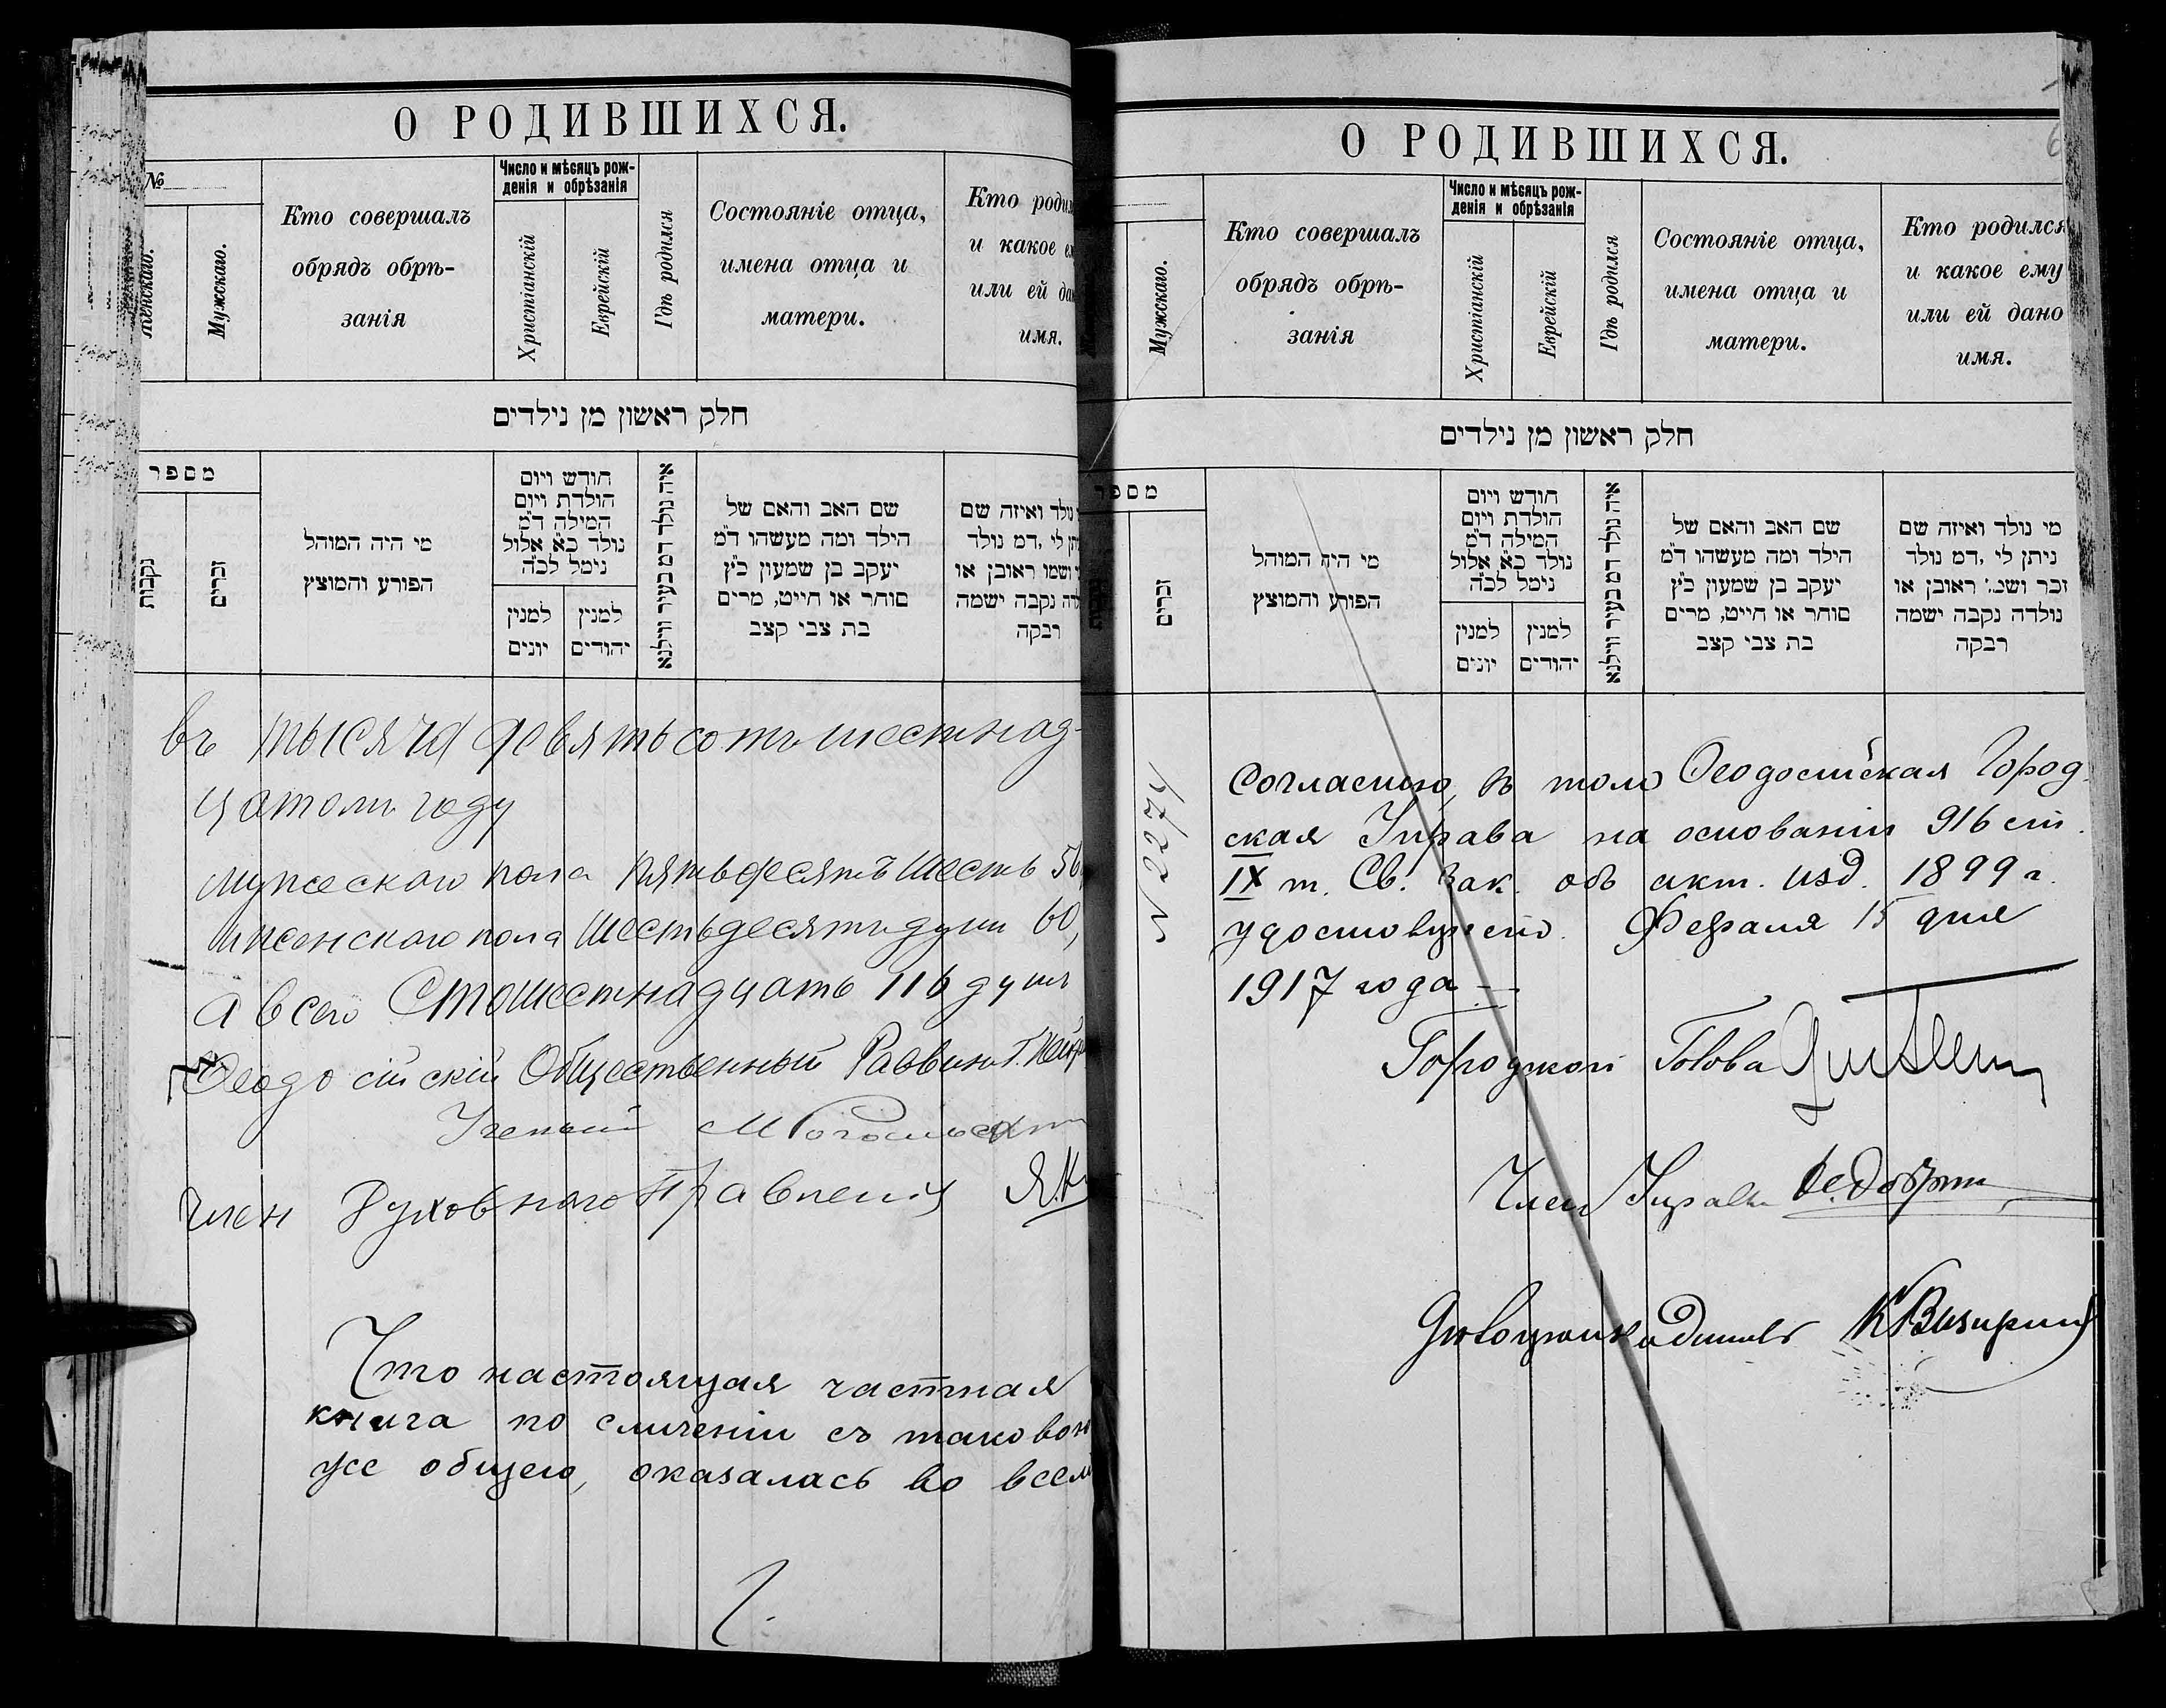 О РОДИВШИХСЯ.
№
Женскаго.
Мужскаго.
Кто совершалъ
обрядъ обрѣ-
занія
Число и мѣсяцъ рож-
денія и обрѣзанія
Христіанскій
Еврейскій
Гдѣ родился
Состояніе отца,
имена отца и
матери.
Кто
и какое
или ей
имя.
חלק ראשון מן נילדים
מספר
נקבות
זכרים
מי היה המוהל
הפורע והמוצץ
חודש ויום
הולדת ויום
המילה ד״מ
נולד כ״א אלול
נימל לכ״ה
למנין
יונים
למנין
יהודים
איה נולד דמ בעיר ווילנא
שם האב והאם של
הילד ומה מעשהו ד״מ
יעקב בן שמעון כ״ץ
סוחר או חייט, מרים
בת צבי קצב
נולד ואיזה שם
לי, דמ נולד
ושמו ראובן או
נקבה ישמה
רבקה
въ тысяча девятьсотъ шестнад-
цатомъ году
мужескаго пола пятьдесятъ шесть 56,
женскаго пола шестьдесятъ душъ 60,
а всего Стошестнадцать 116 душъ
Ѳеодосійскій Общественный Раввинъ
Ученый
Членъ Духовнаго Правленія
Что настоящая частная
книга по сличеніи съ таковою
же общею, оказалась во всемъ
О РОДИВШИХСЯ.
6
Мужскаго.
Кто совершалъ
обрядъ обрѣ-
занія
Число и мѣсяцъ рож-
денія и обрѣзанія
Христіанскій
Еврейскій
Гдѣ родился
Состояніе отца,
имена отца и
матери.
Кто родился
и какое ему
или ей дано
имя.
חלק ראשון מן נילדים
מספר
זכרים
מי היה המוהל
הפורע והמוצץ
חודש ויום
הולדת ויום
המילה ד״מ
נולד כ״א אלול
נימל לכ״ה
למנין
יונים
למנין
יהודים
איה נולד דמ בעיר ווילנא
שם האב והאם של
הילד ומה מעשהו ד״מ
יעקב בן שמעון כ״ץ
סוחר או חייט, מרים
בת צבי קצב
מי נולד ואיזה שם
ניתן לי, דמ נולד
זכר ושמו ראובן או
נולדה נקבה ישמה
רבקה
№ 227/
согласною, въ томъ Ѳеодосійская Город-
ская Управа на основаніи 916 ст.
IX т. Св. Зак. объ акт. изд. 1899 г.
удостовѣряетъ. Февраля 15 дня
1917 года
Городской Голова
Членъ Управы
Дѣлопроизводитель